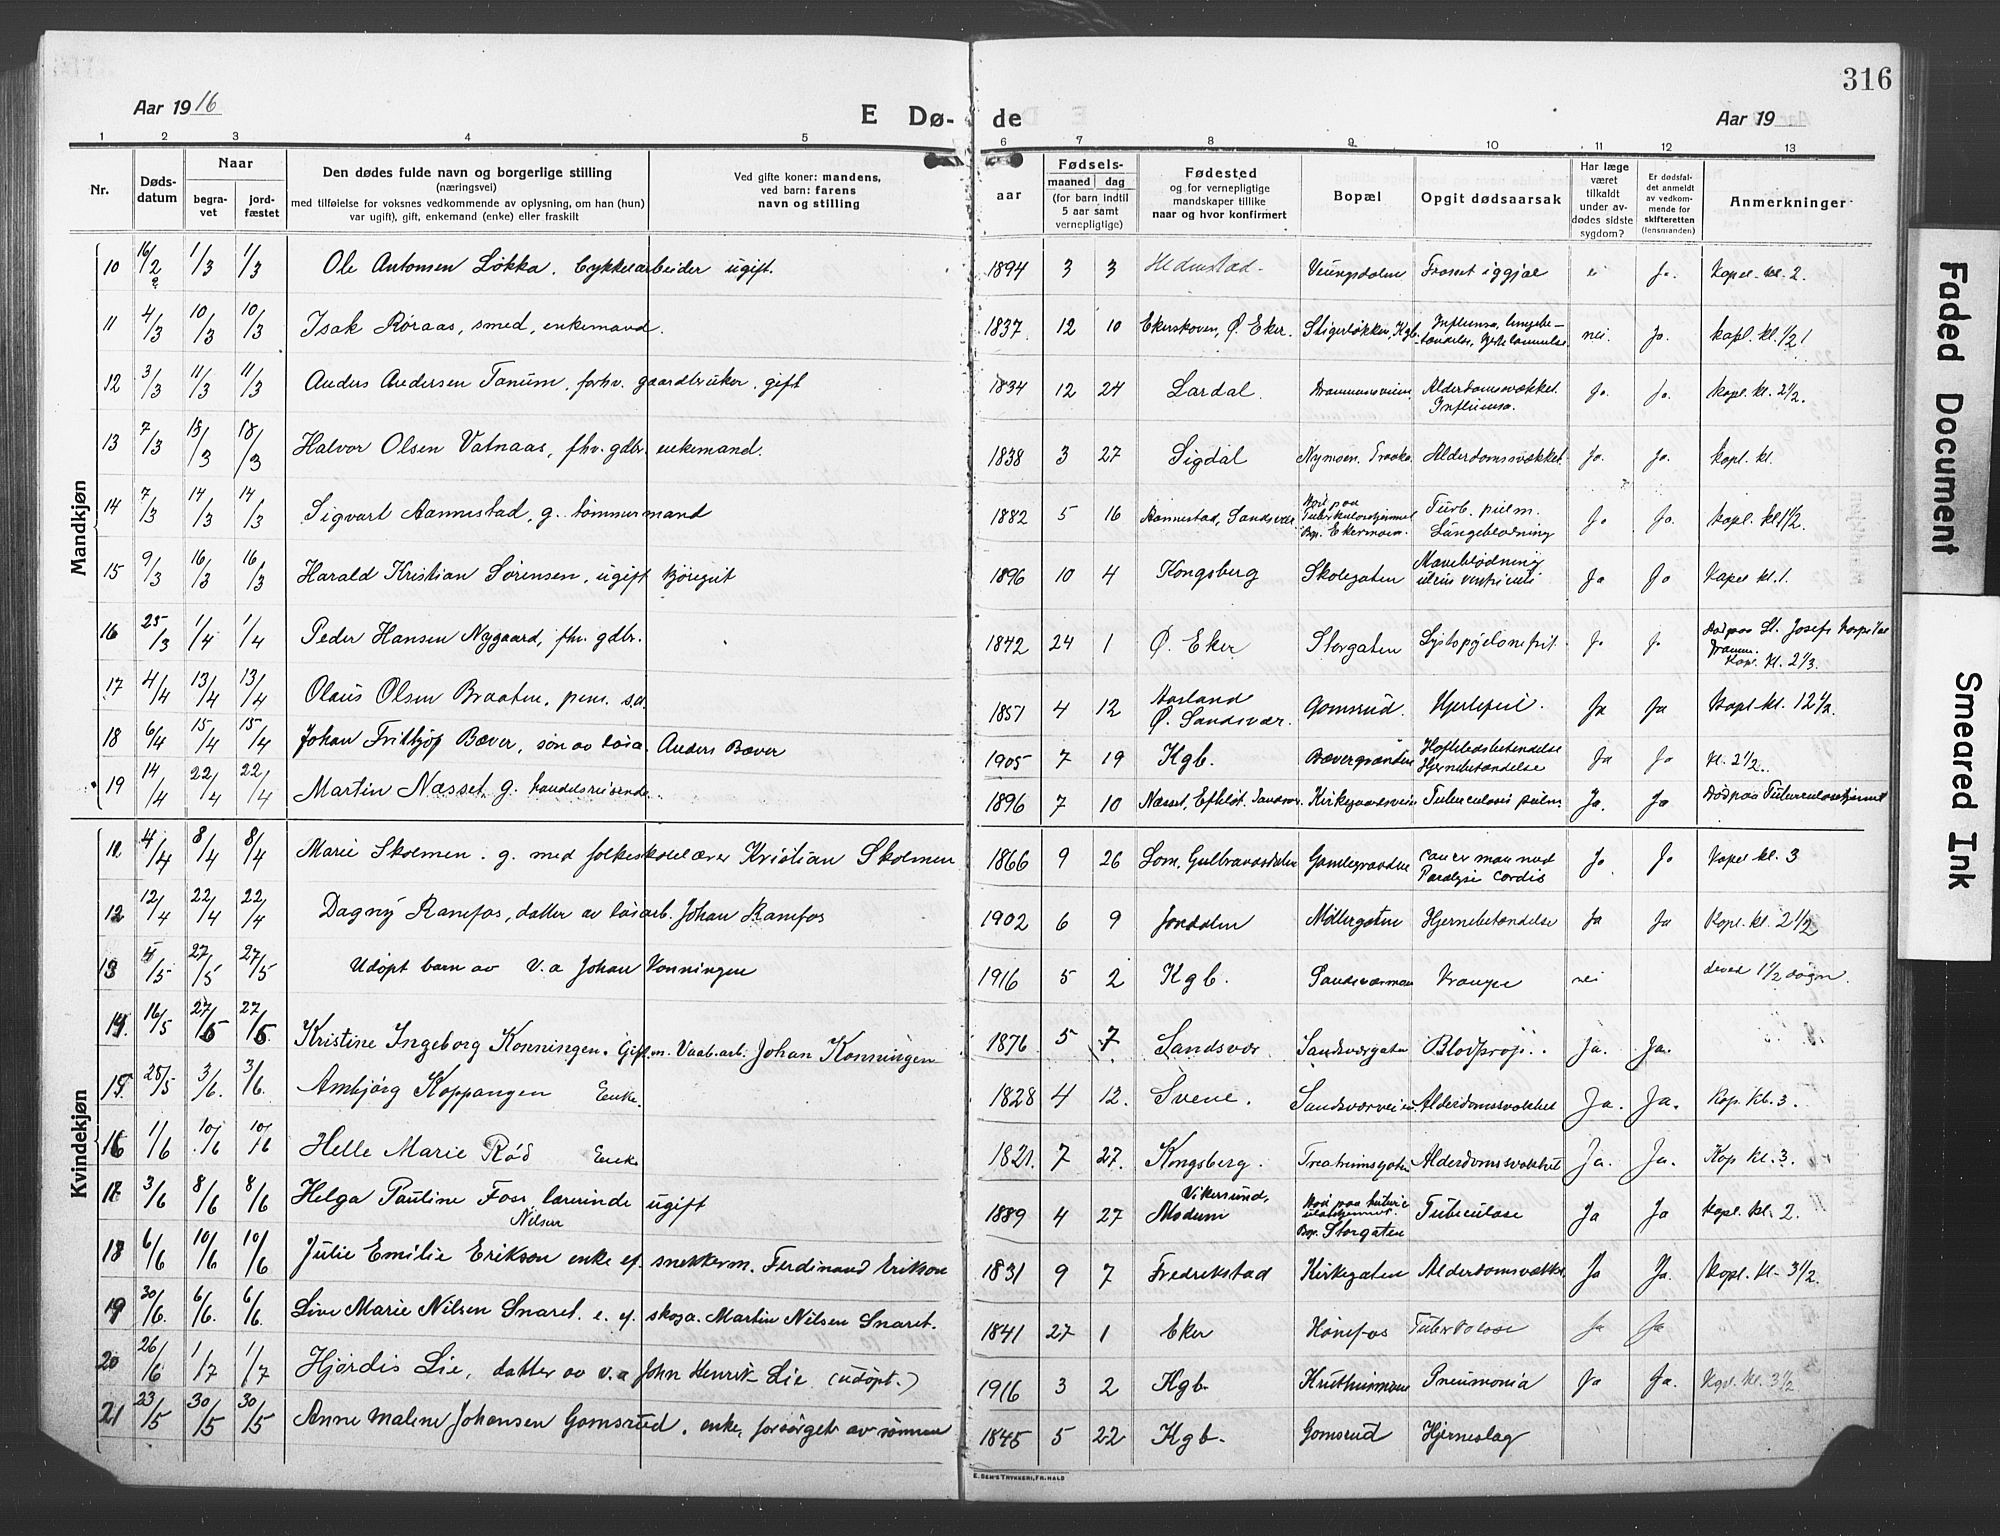 316
Aar 1916
E Dø-
de
Aar 19
1 2 3 4 5 6 7 8 9 10 11 12 13
Nr.
Døds-
datum
Naar
begra-
vet
jord-
fæstet
Den dødes fulde navn og borgerlige stilling
(næringsvei)
med tilføielse for voksnes vedkommende av oplysning, om han (hun)
var ugift), gift, enkemand (enke) eller fraskilt
Ved gifte koner: mandens,
ved barn: farens
navn og stilling
aar
Fødsels-
maaned dag
(for barn indtil
5 aar samt
vernepligtige)
Fødested
og for vernepligtige
mandskaper tillike
naar og hvor konfirmert
Bopæl
Opgit dødsaarsak
Har læge
været
tilkaldt
under av-
dødes sidste
sygdom?
Er dødsfal-
det anmeldt
av vedkom-
mende for
skifteretten
(lensmanden)
Anmerkninger
Mandkjøn
10 16/2 1/3 1/3 Ole Antonsen Løkka. Cykkelarbeider ugift. 1894 3 3 Veungsdalen Frosset ihjel ei Ja. Kapel. kl. 2.
11 4/3 10/3 10/3 Isak Røraas, smed, enkemand. 1837 12 10 Ekerskoven, Ø. Eker. Stigerløkken, Kgb. Influensa, nei. Jo. Kapl. kl. 1/2 1
12 3/3 11/3 11/3 Anders Andersen Tanum, forhv. gaardbruker, gift 1834 12 24 Lardal. Drammensveien Alderdomssvækket. Influensa. Ja. Ja. Kapl. kl. 2 1/2.
13 7/3 18/3 18/3 Halvor Olsen Vatnaas, fhv. gdbr. enkemand. 1838 3 27 Sigdal Nymoen Alderdomssvækket. Ja. Ja. Kapl. kl.
14 7/3 14/3 14/3 Sigvart Aannestad, g. tømmermand 1882 5 16 Aannestad, Sandsvær Død paa Tuberkulosehjemmet Bop. Ekermoen. Turb. pulm. Lungeblødning Ja Ja. Kapl. kl 1 1/2.
15 9/3 16/3 16/3 Harald Kristian Sørensen, ugift kjøregut 1896 10 4 Kongsberg Skolegaten Maveblødning ulcus ventriculi Ja Ja Kapel kl. 1.
16 25/3 1/4 1/4 Peder Hansen Nygaard, fhv. gdbr. 1842 24 1 Ø. Eker Storgaten Cystopyelonefrit. Ja Ja Død paa St. Josefs Hospital Dramm. Kapl. kl. 2 1/3.
17 4/4 13/4 13/4 Olaus Olsen Braaten, pens. s.a. 1851 4 12 Aasland Ø. Sandsvær. Gomsrud. Hjertefeil. Ja Ja Kapl. kl. 12 1/2.
18 6/4 15/4 15/4 Johan Fritthjof Bæver, søn av løsa. Anders Bæver 1905 7 19 Kgb. Bævergrænden Hofteledsbetændelse Hjernebetændelse Ja Ja Kl. 2 1/2.
19 14/4 22/4 22/4 Martin Næsset g. handelsreisende 1896 7 10 Næsset, Efteløt, Sandsvær Kirkegaardsveien Tuberculosis pulm. Ja. Ja Død paa Tuberculosehjemmet
Kvindekjøn
11 4/4 8/4 8/4 Marie Skolmen. g. med folkeskolelærer Kristian Skolmen 1866 9 26 Lom, Gulbrandsdalen Gamlegrænden Paralyse cordis Ja. Ja Kapel kl. 3
12 12/4 22/4 22/4 Dagny Ramfos, datter av løsarb. Johan Ramfos 1902 6 9 Jondalen Møllergaten Hjernebetændelse Ja Ja Kapl. kl. 2 1/2
13 5/5 27/5 27/5 Udøpt barn av V.a Johan Konningen 1916 5 2 Kgb. Sandsværmoen Krampe nei leved 1 1/2 døgn
14. 16/5 27/5 27/5 Kristine Ingeborg Konningen. Gift m. Vaab.arb. Johan Konningen 1876 5 7 Sandsvær. Sandsværgaten Blodprop. Ja. Ja.
15 28/5 3/6. 3/6. Ambjørg Koppangen Enke. 1828 4 12. Svene. Sandsværveien Alderdomssvækket Ja. Ja. Kap. kl. 3.
16 1/6 10/6 10/6 Helle Marie Rød Enke 1821. 7 27. Kongsberg. Alderdomssvækket Ja. Ja. Kap kl. 3.
17 3/6 8/6 8/6 Helga Pauline Foss, lærerinde ugift
Nilsen
1889 4 27 Vikersund, Modum Bop. Storgaten Tuberculose Ja Ja Kapl. kl. 2.
18 6/6 10/6 10/6 Julie Emilie Erikson enke ef. snekkerm. Ferdinand Erikson 1831 9 7 Fredrikstad Kirkegaten Alderdomssvækk. Ja Ja. Kapl. kl- 3 1/2.
19 30/6. 6/6. 6/6. Live Marie Nilsen Snaret. e. ef. skoga. Martin Nilsen Snaret. 1841 27 1 Eker Hønefos Tuberkulose Ja Ja
20 26/6 1/7 1/7 Hjørdis Lie, datter av v.a John Henrik Lie (udøpt.) 1916 3 2 Kgb. Pneumonia Ja Ja. Kapl. kl. 3 1/2
21 23/5 30/5 30/5 Anne Malene Johansen Gomsrud, enke, forsørget av sønnen 1845 5 22 Kgb. Gomsrud Hjerneslag
E. SEM'S TRYKKERI, FR.HALD
Faded Document
Smeared Ink